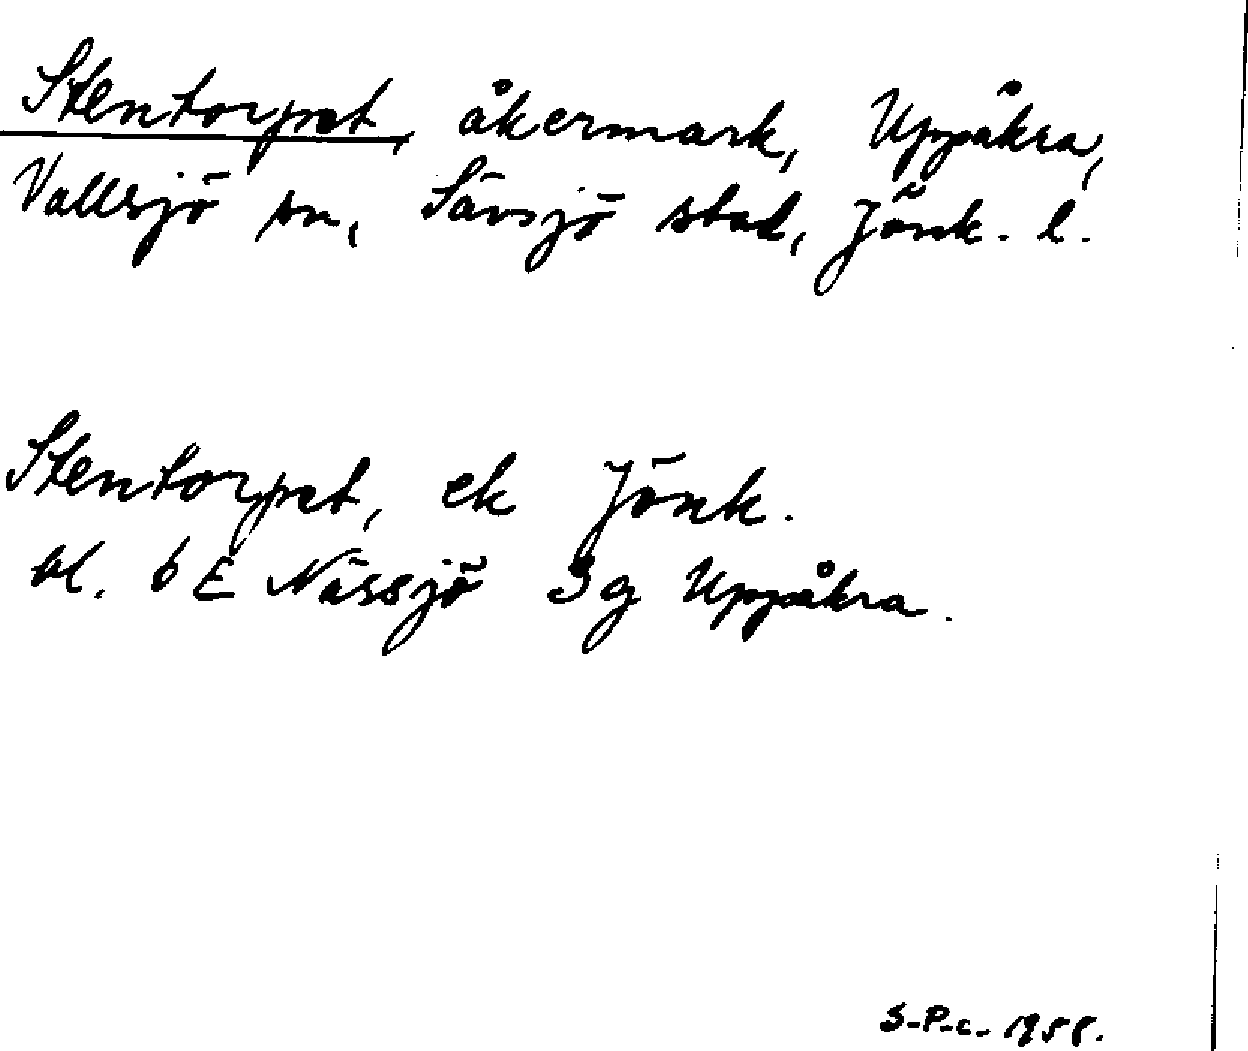 Stentorpet, åkermark, Uppåkra,
Vallsjö sn, Sävsjö stad, Jönk. l.
Stentorpet, ek Jönk.
bl. 6 E Nässjö 3g Uppåkra.
S-P-c- 1955.